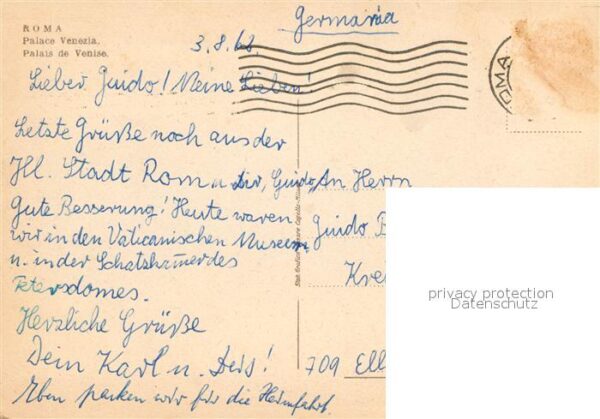 ROMA
Palace Venezia.
Palais de Venise.
Germania
3.8.68
OMA
Lieber Guido! Meine Lieben!
Letzte Grüße noch aus der
Hl. Stadt Rom u. Dir, Guido,
Gute Besserung! Heute waren
wir in den Vaticanischen Museen
u. in der Schatzkammer des
Petersdomes.
Herzliche Grüße
Dein Karl u.
Eben packen wir für die Heimfahrt.
An Herrn
Guido B
Kre
709 Ell
privacy protection
Datenschutz